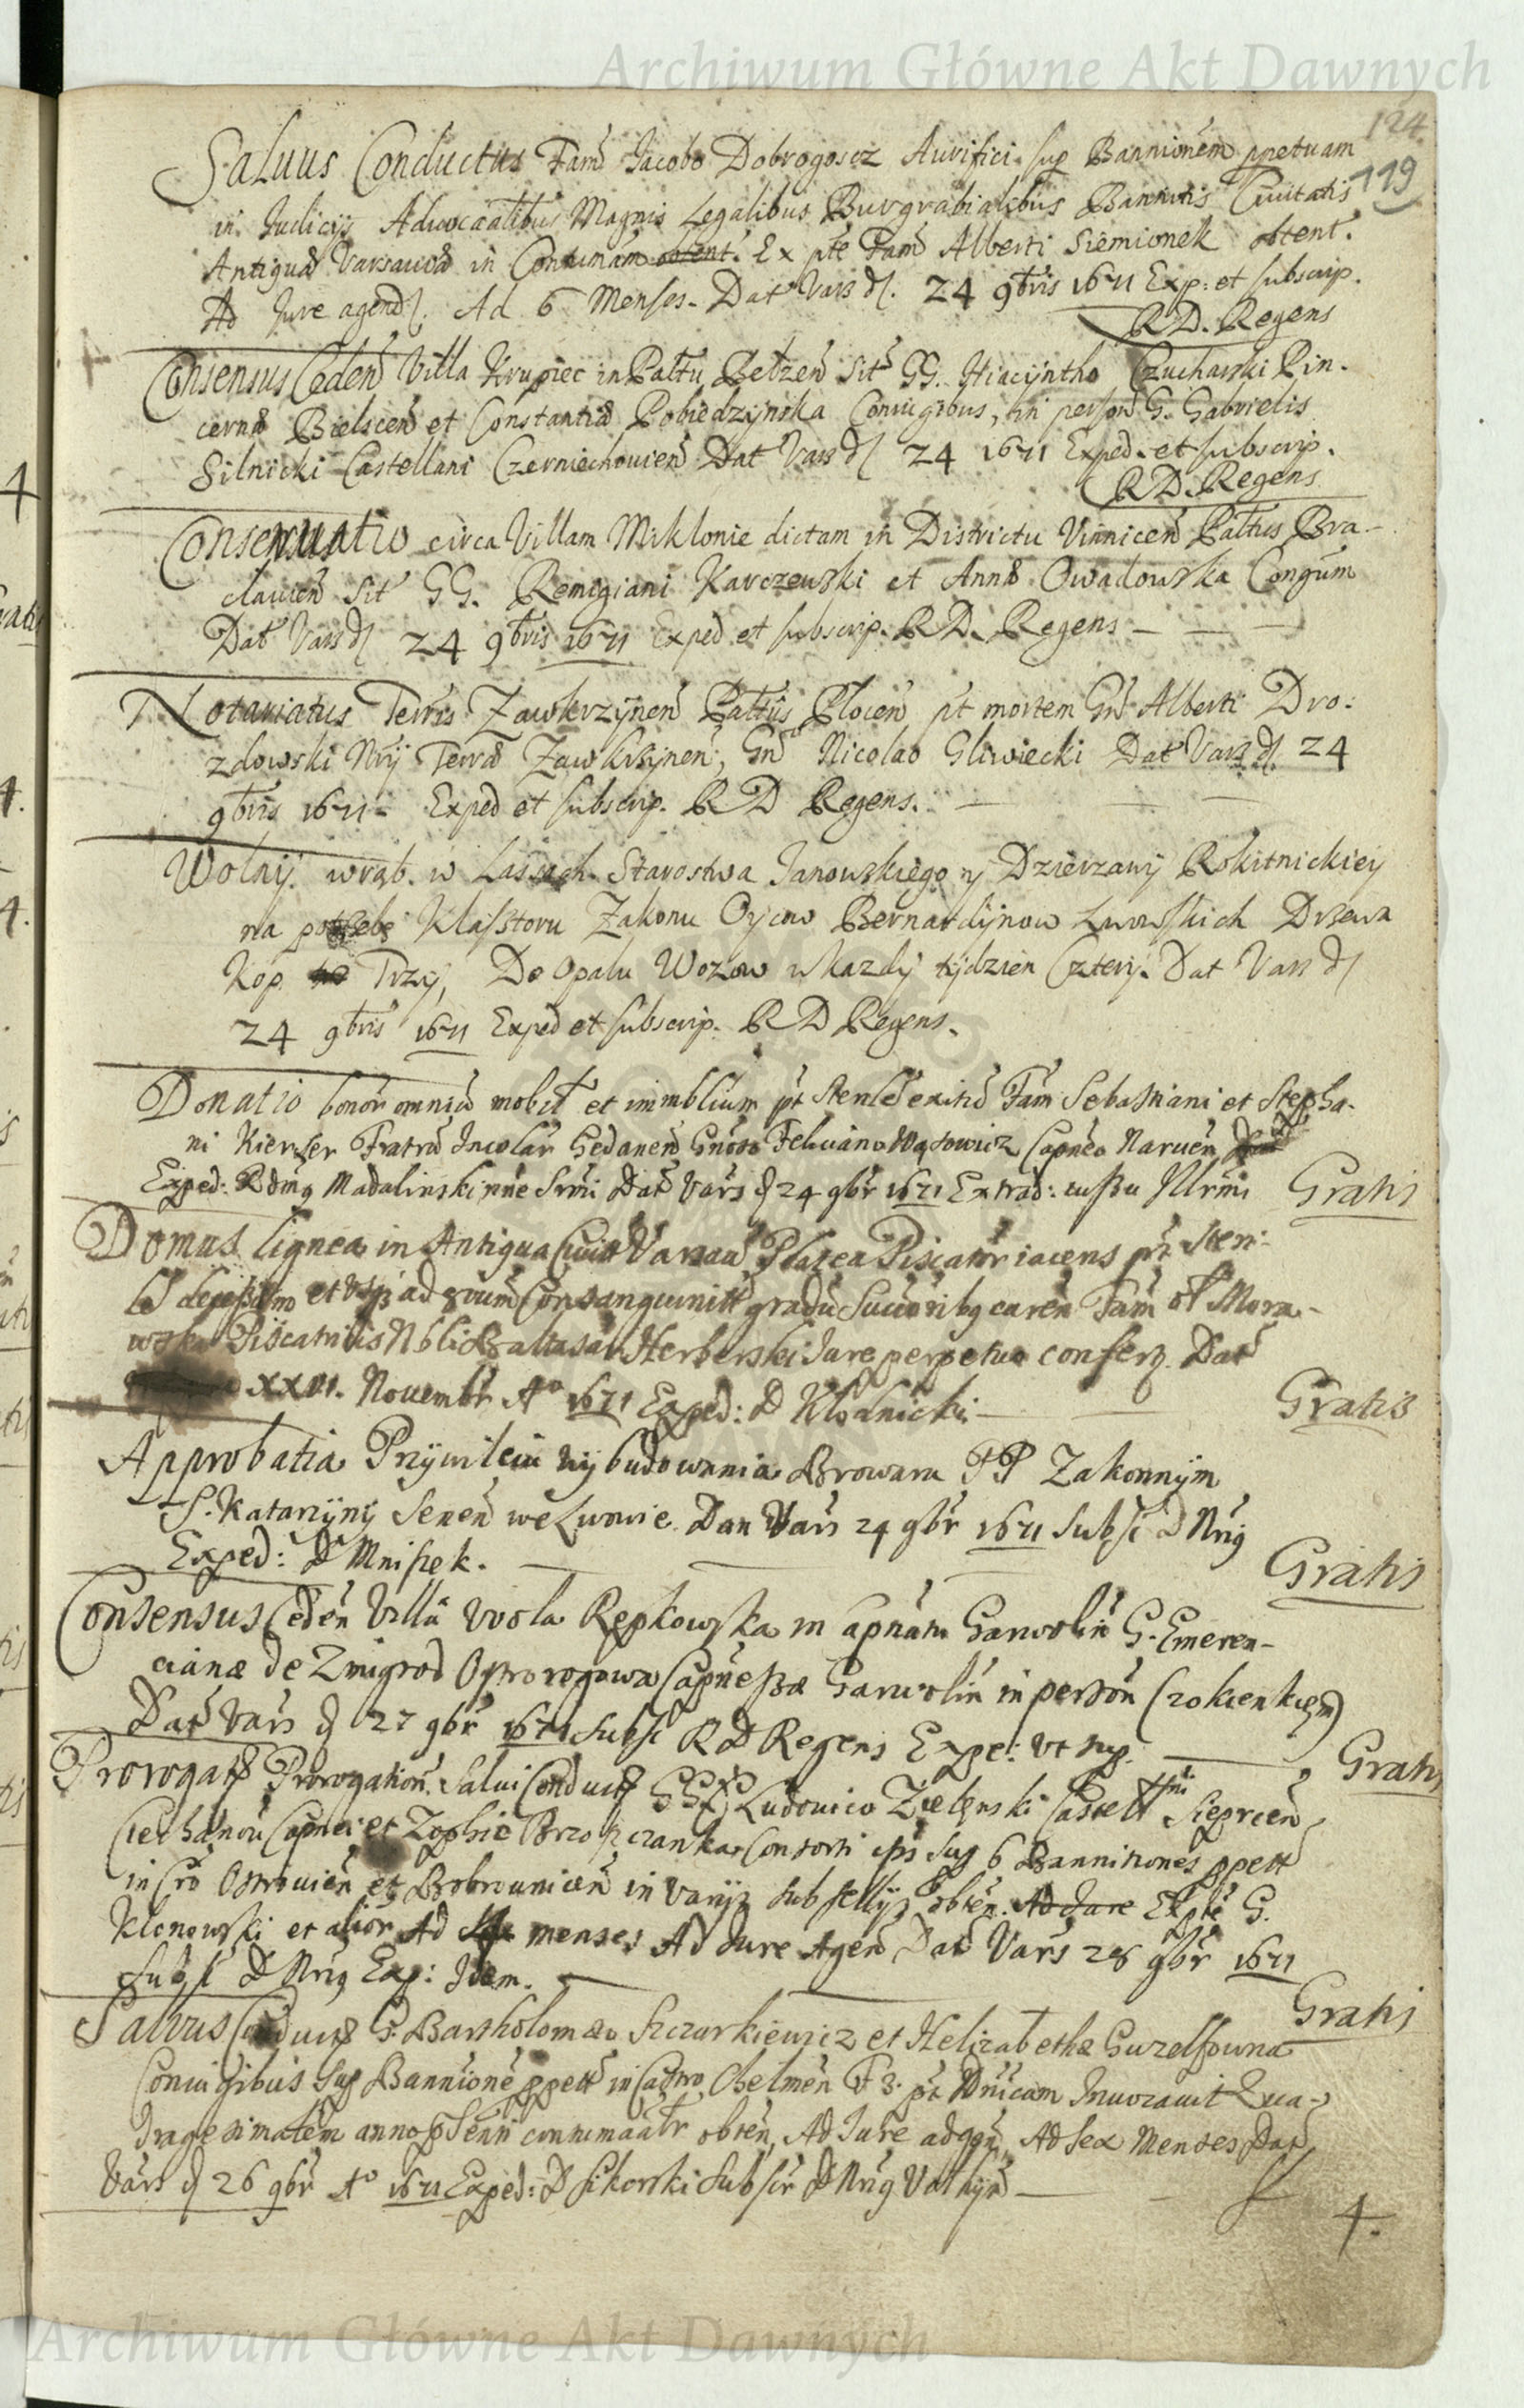 Archiwum Główne Akt Dawnych
124
119
Saluus Conductus Famo Jacobo Dobrogoscz Aurifici sup Bannionem ppetuam
in Judicijs Aduocatialibus Magnis Legalibus Burgrabialibus Bannitis Ciuitatis
Antiqua Varsauia in Contumam obtent. Ex pte Fami Alberti Siemionek obtent.
Ad Jure agend. Ad 6 Menses. Dat Vars d. 24 9bris 1671 Exp: et subscrip.
RD. Regens
Consensus Ceden Villa Krupiec in Paltu Belzen Sit GG. Hiacijntho Czucharski Pin-
cerna Bielscen et Constantia Pobiedzijnska Coniugibus, in person G. Gabrielis
Silnicki Castellani Czerniechouien Dat Vars d 24 1671 Exped. et subscrip.
RD. Regens
Conseruatio circa Villam Miklonie dictam in Districtu Vinnicen Paltus Bra-
clauien Sit GG. Remigiani Karczewski et Anna Owadowska Congum
Dat Vars d 24 9bris 1671 Exped et subscrip. RD. Regens
Notariatus Terris Zawkrzijnen Paltus Plocen pt mortem Gn Alberti Dro:
zdowski Nrij Terra Zawkrzijnen, Gno Nicolao Gliwiecki Dat Vars d. 24
9bris 1671 Exped et subscrip. RD Regens.
Wolnij wrąb w Lassach Starostwa Janowskiego ij Dzierzawij Rokitnickieij
na potrzebę Klasstoru Zakonu Oycow Bernardijnow Lwowskich Drzewa
Kop Trzij, Do Opalu Wozow w kazdij tijdzien Czterij. Dat Vars d
24 9bris 1671 Exped et subscrip. RD Regens.
Donatio bonor omniu mobil et immblium pt Steril exitu Fam Sebastiani et Stepha-
ni Kierser Fratru Incolar Gedanen Gnoso Feliciano Wąsowicz Capneo Naruen
Exped: Rdmg Madalinski nne Srmi Dat Vars d 24 9br 1671 Extrad: iussu Illrmi Gratis
Domus lignea in Antiqua Ciuitt Varsau Platea Piscator iacens pt Steri-
le decessum et usq ad 8uum Consanguinitt gradu Successoribg caren Fam ol Mora-
wska Piscatricis Nbli Baltasar Herberski Jure perpetuo confert. Dat
XXVI. Nouembr Ao 1671 Exped: D Klodnicki Gratis
Approbatia Przijwileiu wijbudowania Browaru PP Zakonnijm
S. Katarzijnij Senen we Lwowie. Dan Vars 24 9br 1671 Subsc D Nrig
Exped: D Mniszek. Gratis
Consensus Ceden Villa Wola Repkowska in Capnatu Garwolin G. Emeren-
cianæ de Zmigrod Ostrorogowa Capnessæ Garwolin in person
Dat Vars d 27 9br 1671 Subsc RD Regens Expe: Vt sup. Gratis
Prorogat Prorogation Salui Conduct GG Ludouico Zielenski Castell Sieprcen
Ciechanou Capnei et Zophie Consorti ips sup 6 Bannitiones ppett
in Cro Ostrouien et Bobrounicen in varijs subsellijs obten. Ad Jure Ex pte G.
Klonowski et alior Ad menses Ad Jure Agen Dat Vars 28 9br 1671
Subsc D Nrig Exp: Idem. Gratis
Salvus Conduct G. Bartholomæo Szczurkiewicz et Helizabethæ Guzelfowna
Coniugibus sup Bannione ppett in Castro Chelmen F 3. pt Dnicam Inuocauit Qua-
dragesimalem anno Senti contumaatr obten, Ad Jure adgen, Ad Sex Menses Dat
Vars d 26 9br Ao 1671 Exped: D Sikorski Subscr D Nrig
4.
Archiwum Główne Akt Dawnych